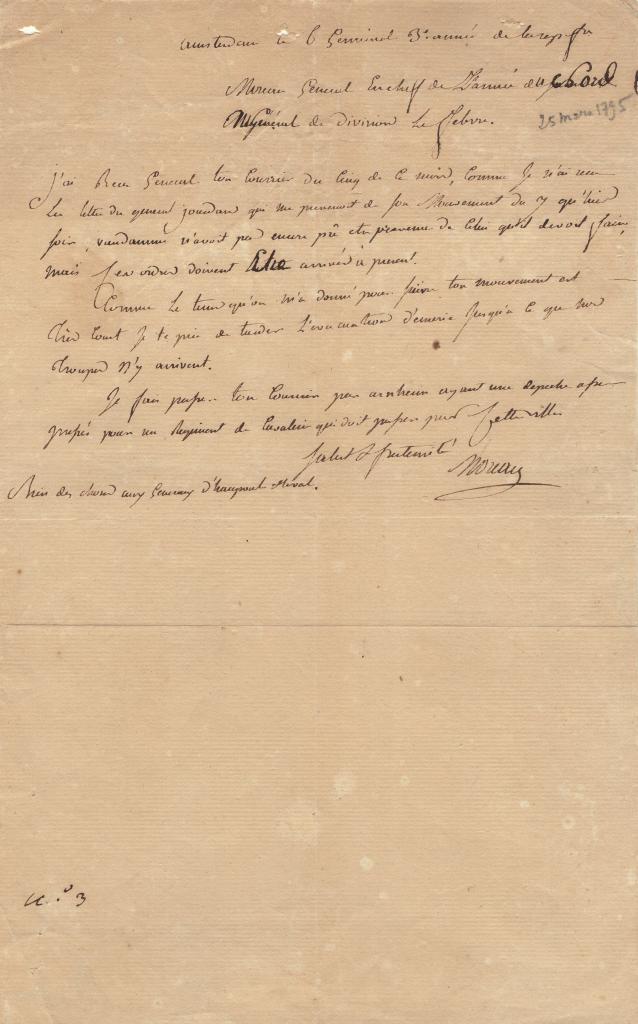 amsterdam le 6 Germinal 3e année de la rep. fr
Moreau Général En chef de L'armée du Nord
Au Général de division Le febvre.
25 mars 1795
J'ai Recu General ton Courrier du Cinq de Ce mois, Comme Je n'ai recu
La lettre du general jourdan qui me prevenoit de son Mouvement du 7 qu'hier
soir, vandamme n'avoit pas encore pû etre prevenu de Celui qu'il devoit faire,
mais ses ordres doivent Etre arrivés à present.
Comme Le tems qu'on m'a donné pour suivre ton mouvement est
très Court Je te prie de tarder L'evacuation d'emeric Jusqu'a Ce que nos
Troupes N'y arrivent.
Je fais passer ton Courrier par arnheim ayant une depeche
pour un Regiment de Cavalerie qui doit passer par Cette ville
Salut & fraternité
Moreau
Bien des choses aux Generaux d'haupoul
N.o 3